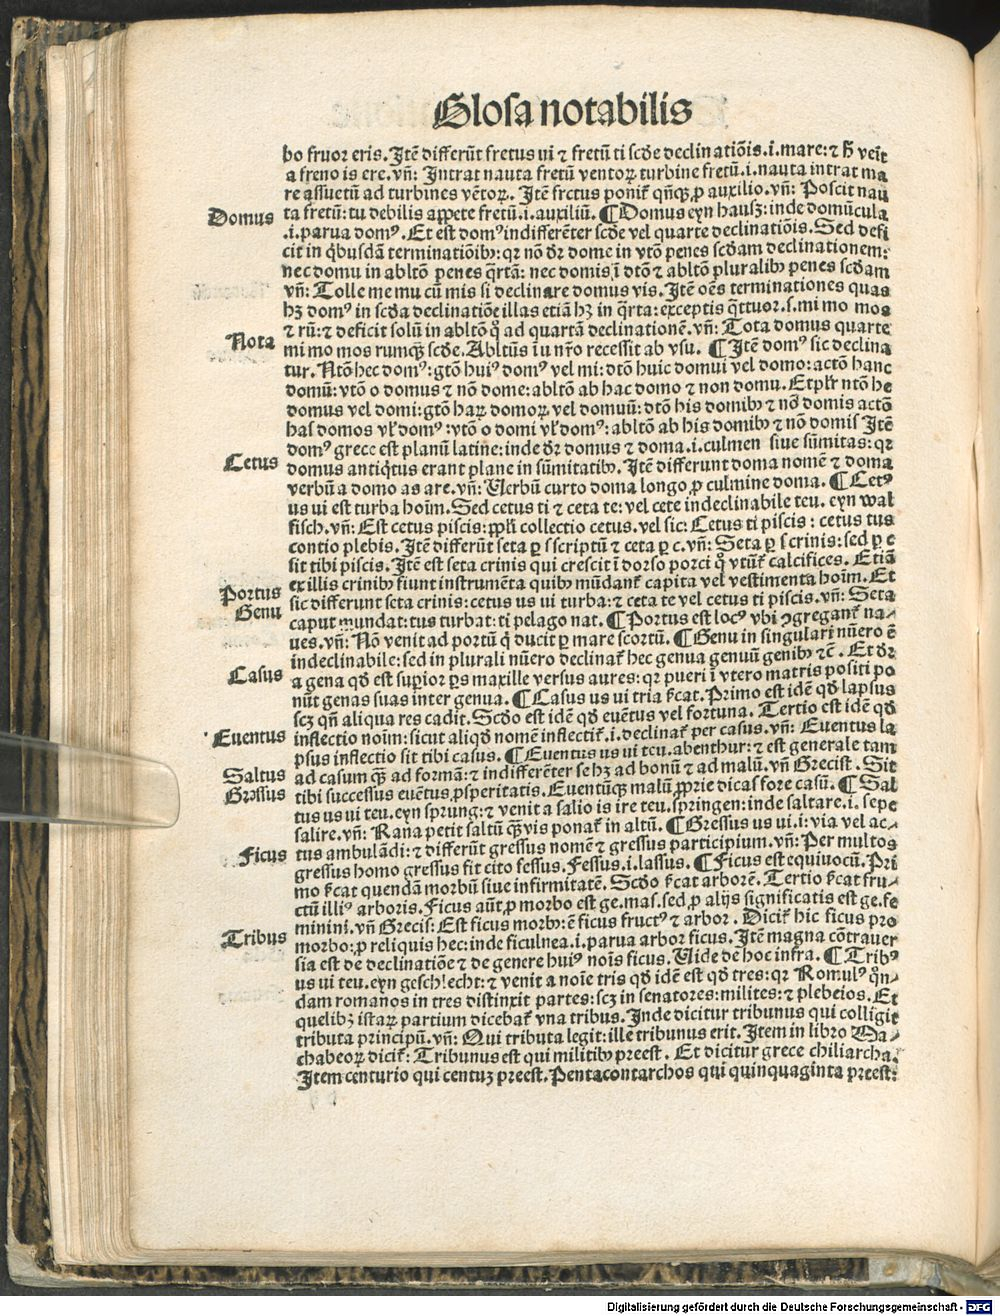 Glosa notabilis
bo fruor eris. Itē differūt fretus ui ⁊ fretū ti scd̄e declinatiōis .i. mare: ⁊ h̄ veīt
a freno is ere. vn̄: Intrat nauta fretū ventoꝝ turbine fretū .i. nauta intrat ma
re assuetū ad turbines vētoꝝ. Itē fretus poniť qn̄qꝫ ꝓ auxilio. vn̄: Poscit nau
Domus
ta fretū: tu debilis appete fretū .i. auxiliū. ¶ Domus eyn hausʒ: inde domūcula
.i. parua domꝰ. Et est domꝰ indifferēter scd̄e vel quarte declinatiōis. Sed defi
cit in q̇busdā terminatiōibꝫ: qꝛ nō dꝛ̄ dome in vtō penes scd̄am declinationem:
nec domu in abltō penes q̄rtā: nec domis ī dtō ⁊ abltō pluralibꝫ penes scd̄am
vn̄: Tolle me mu cū mis si declinare domus vis. Itē oēs terminationes quas
hꝫ domꝰ in scd̄a declinatiōe illas etiā hꝫ in q̄rta: exceptis q̄ttuor .s. mi mo mos
⁊ rū: ⁊ deficit solū in abltō qͦ ad quartā declinationē. vn̄: Tota domus quarte
Nota
mi mo mos rumqꝫ scd̄e. Abltūs ī u nr̄o recessit ab vsu. ¶ Itē domꝰ sic declina
tur. Ntō hec domꝰ: gtō huiꝰ domꝰ vel mi: dtō huic domui vel domo: actō hanc
domū: vtō o domus ⁊ nō dome: abltō ab hac domo ⁊ non domu. Et plꝛ̄ ntō he
domus vel domi: gtō haꝝ domoꝝ vel domuū: dtō his domibꝫ ⁊ nō domis actō
has domos vꝉ domꝰ: vtō o domi vꝉ domꝰ: abltō ab his domibꝫ ⁊ nō domis Itē
domꝰ grece est planū latine: inde dꝛ̄ domus ⁊ doma .i. culmen siue sūmitas: qꝛ
Cetus
domus antiq̇tus erant plane in sūmitatibꝫ. Itē differunt doma nomē ⁊ doma
verbū a domo as are. vn̄: Verbū curto doma longo ꝓ culmine doma. ¶ Cetꝰ
us ui est turba hoīm. Sed cetus ti ⁊ ceta te: vel cete indeclinabile teu. eyn wal
fisch. vn̄: Est cetus piscis: collectio cetus. vel sic: Cetus ti piscis: cetus tus
contio plebis. Itē differūt seta ꝑ s scriptū ⁊ ceta ꝑ c. vn̄: Seta ꝑ s crinis: sed ꝑ c
sit tibi piscis. Itē est seta crinis qui crescit ī dorso porci qͦ vtūť calcifices. Etiā
ex illis crinibꝫ fiunt instrumēta quibꝫ mūdanť capita vel vestimenta hoīm. Et
Portus
sic differunt seta crinis: cetus us ui turba: ⁊ ceta te vel cetus ti piscis. vn̄: Seta
Genu
caput mundat: tus turbat: ti pelago nat. ¶ Portus est locꝰ vbi ꝯgreganť na
ues. vn̄: Nō venit ad portū q̇ ducit ꝑ mare scortū. ¶ Genu in singulari nūero ē
indeclinabile: sed in plurali nūero declinať hec genua genuū genibꝫ ⁊c̄. Et dꝛ̄
Casus
a gena qd̄ est superior ꝑs maxille versus aures: qꝛ pueri ī vtero matris positi po
nūt genas suas inter genua. ¶ Casus us ui tria ſc̄at. Primo est idē qd̄ lapsus
scꝫ qn̄ aliqua res cadit. Scd̄o est idē qd̄ euētus vel fortuna. Tertio est idē qd̄
Euentus
inflectio noīm: sicut aliqd̄ nomē inflectiť .i. declinať per casus. vn̄: Euentus la
psus inflectio sit tibi casus. ¶ Euentus us ui teu. abenthur: ⁊ est generale tam
Saltus
ad casum qꝫ ad formā: ⁊ indifferēter se hꝫ ad bonū ⁊ ad malū. vn̄ Grecist. Sit
Gressus
tibi successus euētus ꝓsperitatis. Euentūqꝫ malū ꝓprie dicas fore casū. ¶ Sal
tus us ui teu. eyn sprung: ⁊ venit a salio is ire teu. springen: inde saltare .i. sepe
salire. vn̄: Rana petit saltū qꝫuis ponať in altū. ¶ Gressus us ui .i: via vel ac⸗
Ficus
tus ambulādi: ⁊ differūt gressus nomē ⁊ gressus participium. vn̄: Per multos
gressus homo gressus fit cito fessus. Fessus .i. lassus. ¶ Ficus est equiuocū. Pri
mo ſc̄at quendā morbū siue infirmitatē. Scd̄o ſc̄at arborē. Tertio ſc̄at fru⸗
ctū illiꝰ arboris. Ficus aūt ꝓ morbo est ge. mas. sed ꝓ alijs significatis est ge. fe
minini. vn̄ Grecis: Est ficus morbꝫ: ē ficus fructꝰ ⁊ arbor. Diciť hic ficus pro
Tribus
morbo: ꝓ reliquis hec: inde ficulnea .i. parua arbor ficus. Itē magna cōtrauer
sia est de declinatiōe ⁊ de genere huiꝰ noīs ficus. Vide de hoc infra. ¶ Tribꝰ
us ui teu. eyn geschlecht: ⁊ venit a noīe tris qd̄ idē est qd̄ tres: qꝛ Romulꝰ qͦn⸗
dam romanos in tres distinxit partes: scꝫ in senatores: milites: ⁊ plebeios. Et
quelibꝫ istaꝝ partium dicebať vna tribus. Inde dicitur tribunus qui colligit
tributa principū. vn̄: Qui tributa legit: ille tribunus erit. Item in libro Ma⸗
chabeoꝝ diciť: Tribunus est qui militibꝫ preest. Et dicitur grece chiliarcha.
Item centurio qui centuꝫ preest. Pentacontarchos qui quinquaginta preest:
Digitalisierung gefördert durch die Deutsche Forschungsgemeinschaft - DFG